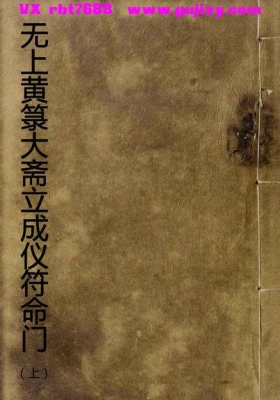 VX rbt7688 www.gujisy.com
无上黄箓大斋立成仪符命门
（上）